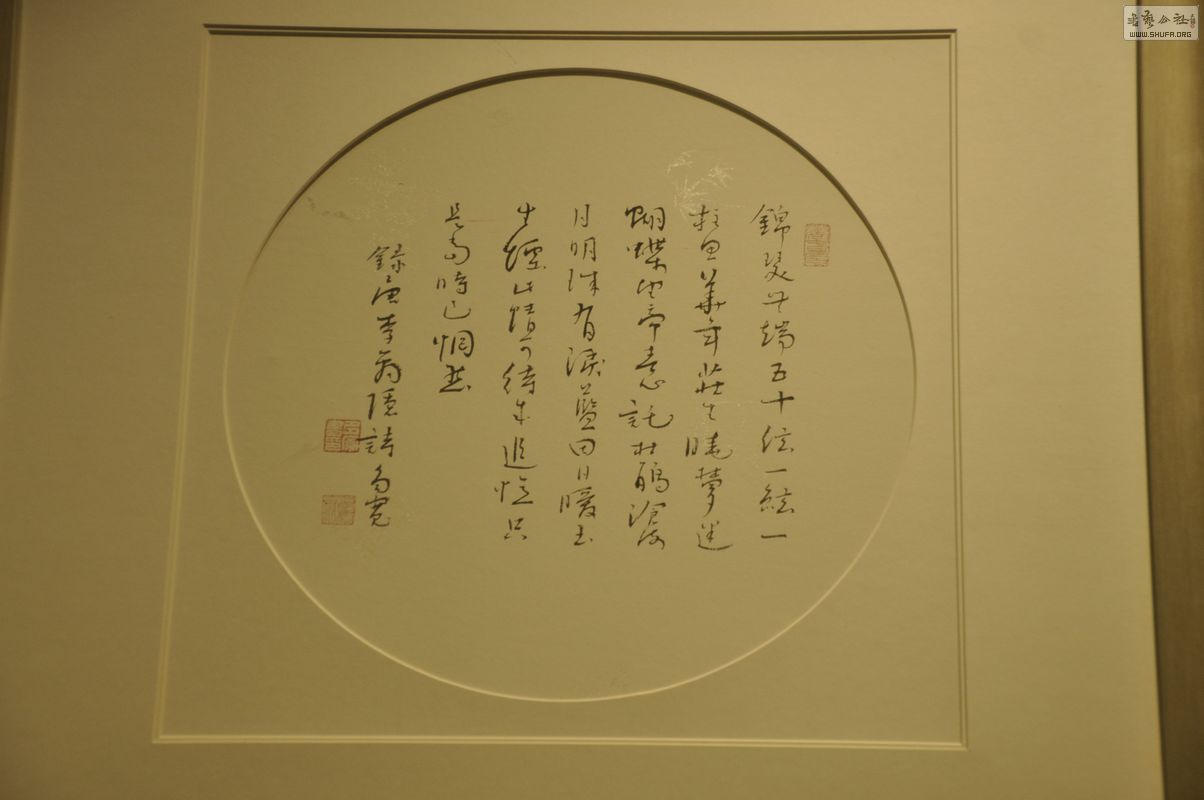 錦瑟無端五十弦一絃一
柱思華年莊生曉夢迷
蝴蝶望帝春心託杜鵑滄海
月明珠有淚藍田日暖玉
生煙此情可待成追憶只
是當時已惘然
錄唐李商隱詩 寬
書藝公社
WWW.SHUFA.ORG